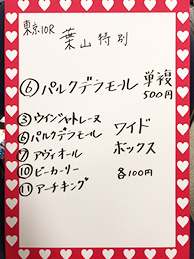 東京10R 葉山特別
⑥パルクデラモール 単複
500円
③ウインジャトレーヌ
⑥パルクデラモール
⑦アヴィオール
⑩ピーカーリー
⑪アーチキング
ワイド
ボックス
各100円